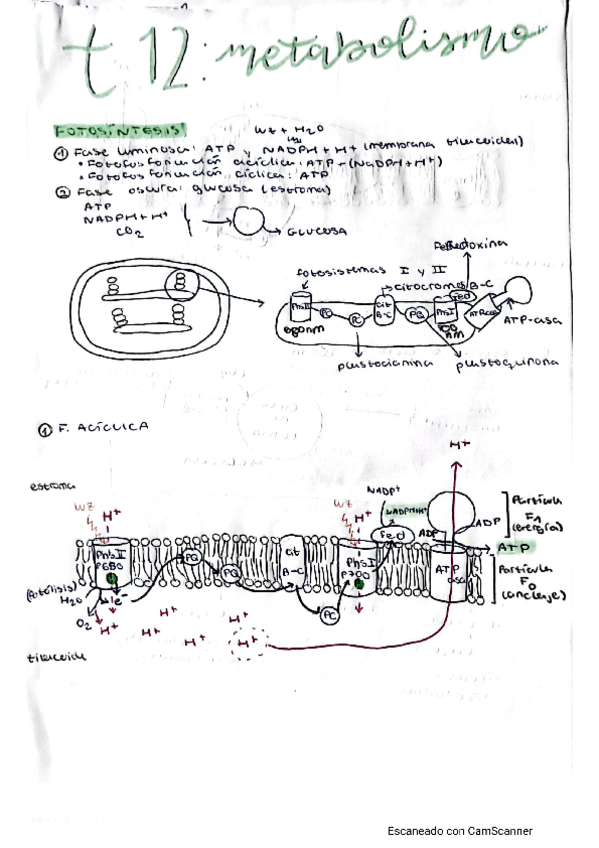 t 12: metabolismo
FOTOSÍNTESIS
wz + H2O
① Fase luminosa: ATP y NADPH+H+ (membrana tilacoides)
• Fotofosforilación acíclica: ATP+(NADPH+H+)
• Fotofosforilación cíclica: ATP
② Fase oscura: glucosa (estroma)
ATP
NADPH+H+
CO2
GLUCOSA
Ferredoxina
fotosistemas I y II
citocromo B-C
PhsII
PC
PC
Cit B-C
PQ
PhsI
Fed
ATPasa
ATP-asa
680nm
700 nm
plastocianina
plastoquinona
① F. ACÍCLICA
H+
estroma
wz
H+
wz
H+
NADP+
NADPH+H+
Fed
ADP
ADP
Partícula F1 (energía)
ATP
Partícula F0 (anclaje)
PhsII P680
PQ
PQ
Cit B-C
PhsI P700
ATP asa
(fotólisis)
H2O
1e-
O2
H+
H+
H+
H+
H+
H+
PC
tilacoide
Escaneado con CamScanner